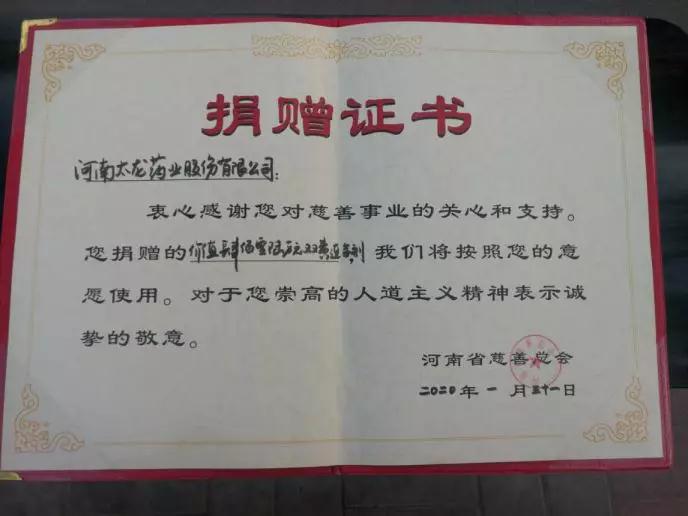 捐赠证书
河南太龙药业股份有限公司：
衷心感谢您对慈善事业的关心和支持。
您捐赠的价值肆佰零万元双黄连剂我们将按照您的意
愿使用。对于您崇高的人道主义精神表示诚
挚的敬意。
河南省慈善总会
2020年一月三十一日